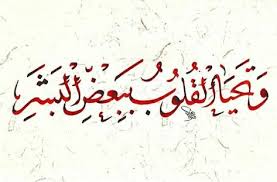 وَتَحيَا القُلُوبُ بِبَعضِ البَشَرِ